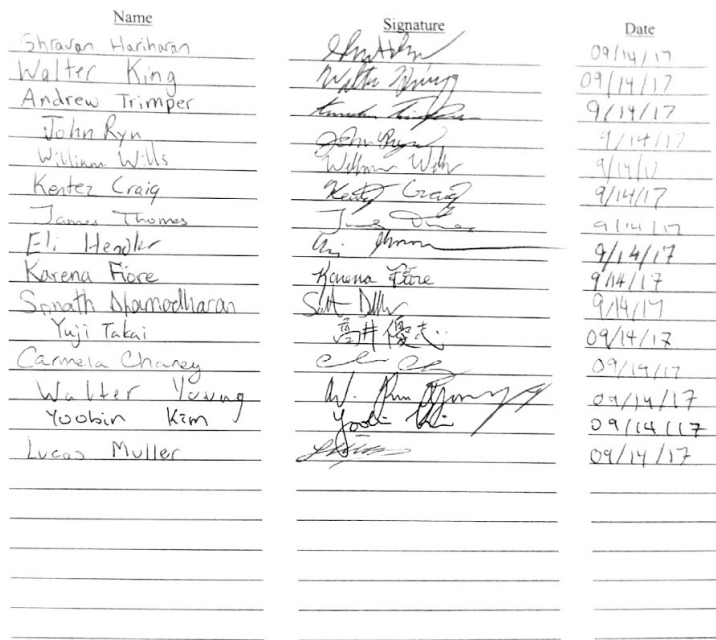 Name Signature Date
Shravan Hariharan 09/14/17
Walter King Walter King 09/14/17
Andrew Trimper 9/14/17
John Ryn John Ryn 9/14/17
William Wills William Wills 9/14/17
Kentez Craig Kentez Craig 9/14/17
James Thomas 9/14/17
Eli Hendler 9/14/17
Karena Fiore Karena Fiore 9/14/17
9/14/17
Yuji Takai 高井優志 09/14/17
Carmela Chaney 09/14/17
Walter Young 09/14/17
Yoobin Kim 09/14/17
Lucas Muller 09/14/17